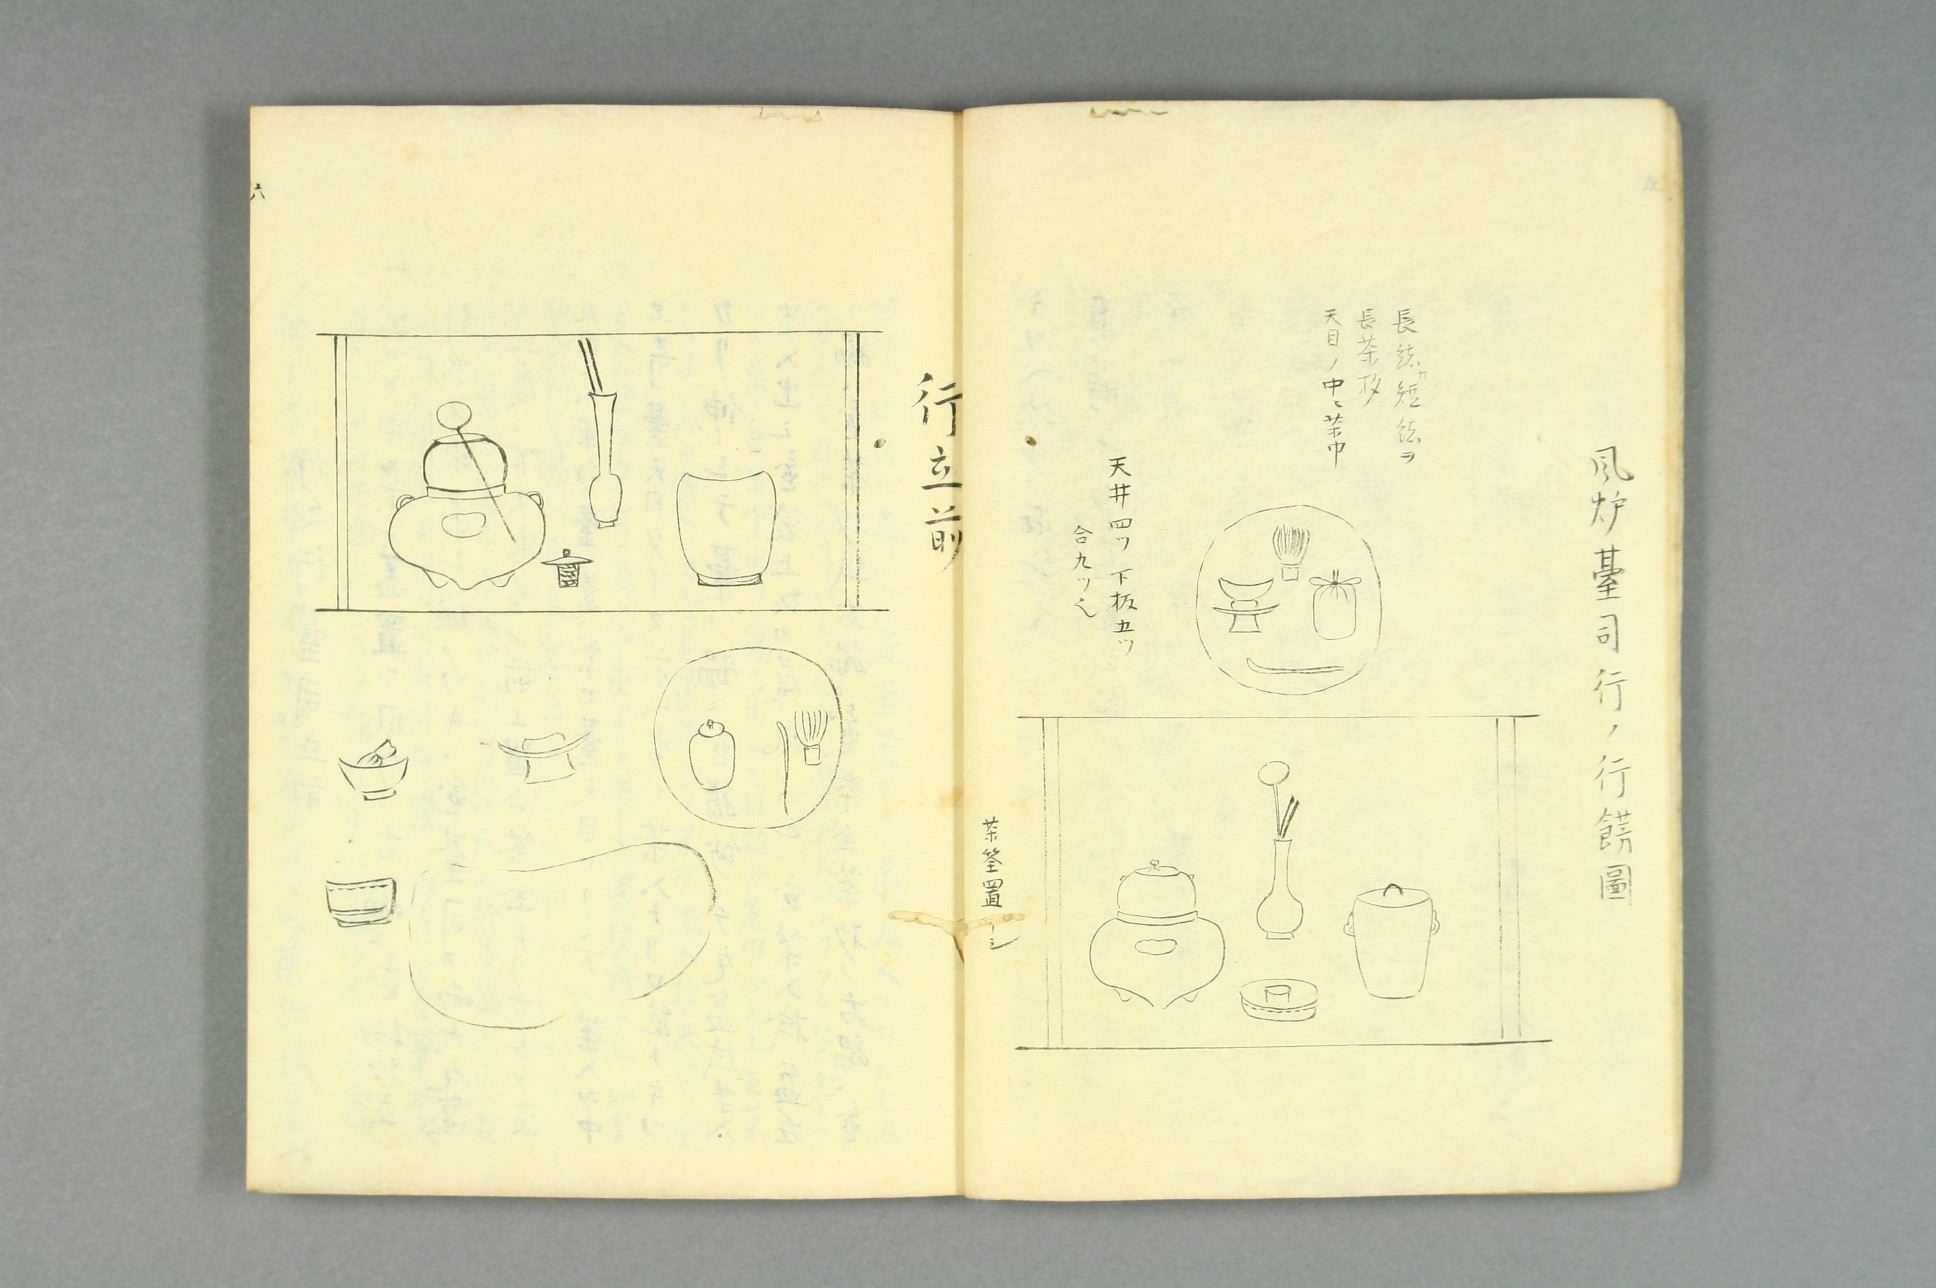 風炉臺司行ノ行餝圖
長緒カ短緒ヲ
長茶杓
天目ノ中ニ茶巾
天井四ツ下板五ツ
合九ツ也
茶筌置ナシ
行立前
六